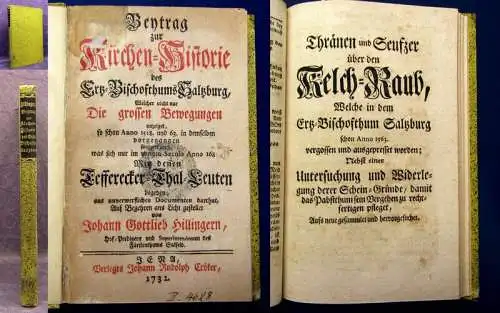 Beytrag
zur
Kirchen-Historie
des
Ertz-Bischoffthums Saltzburg,
Welcher nicht nur
Die grossen Bewegungen
anzeiget,
so schon Anno 1528. und 63. in demselben
vorgegangen
was sich nur im vorigen Seculo Anno 168
Mit denen
Tefferecker-Thal-Leuten
begeben;
aus unverwerflichen Documenten darthut,
Auf Begehren ans Licht gestellet
von
Johann Gottlieb Hillingern,
Hof-Predigern und Superintendenten des
Fürstenthums Salfeld.
JENA,
Verlegts Johann Rudolph Cröker,
1732.
Thränen und Seufzer
über den
Kelch-Raub,
Welche in dem
Ertz-Bischofthum Saltzburg
schon Anno 1563.
vergossen und ausgepresset worden;
Nebst einer
Untersuchung und Widerle-
gung derer Schein-Gründe, damit
das Pabstthum sein Vergehen zu recht-
fertigen pfleget,
Aufs neue gesammlet und hervorgesuchet.